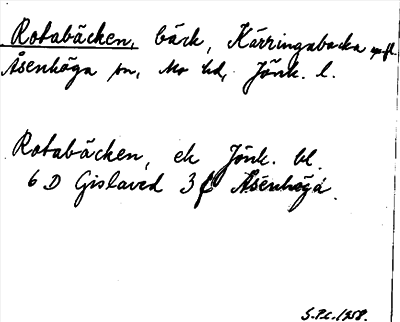 Rotabäcken, bäck, Kärringabacka
Åsenhöga sn, Mo hd, Jönk. l.
Rotabäcken, ek Jönk. bl
6 D Gislaved 3 f Åsenhöga
S.P.C. 1958.